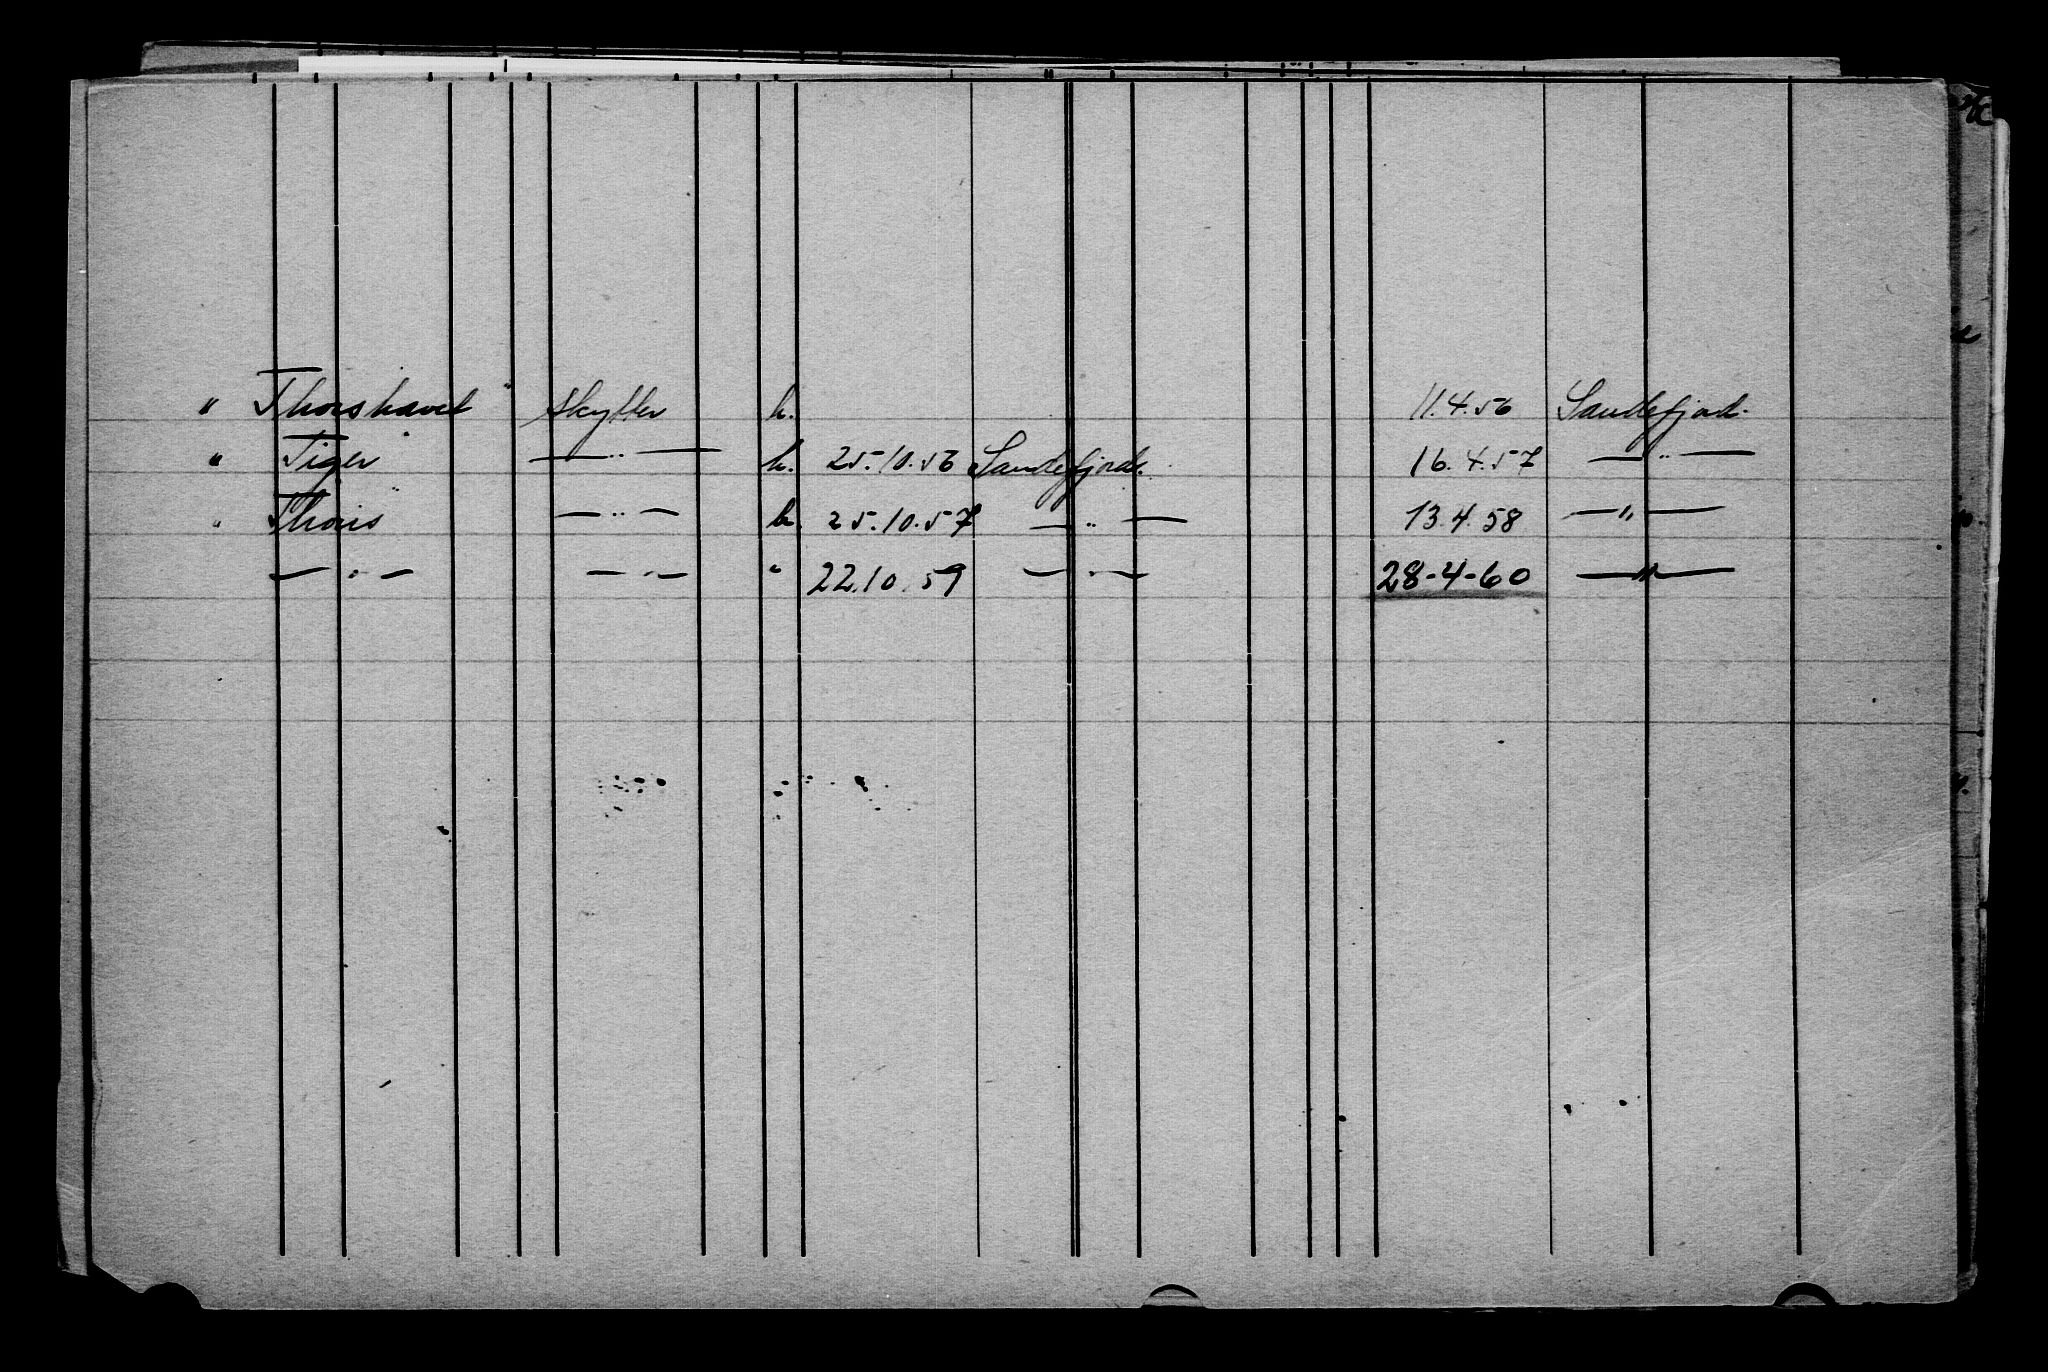 " Thorshavet " skytter h. 11.4.56 Sandefjord.
" Tiger — " — h. 25.10.56 Sandefjord. 16.4.57 — " —
" Thoris — " — h. 25.10.57 — " — 13.4.58 — " —
— " — — " — " 22.10.59 — " — 28-4-60 — " —